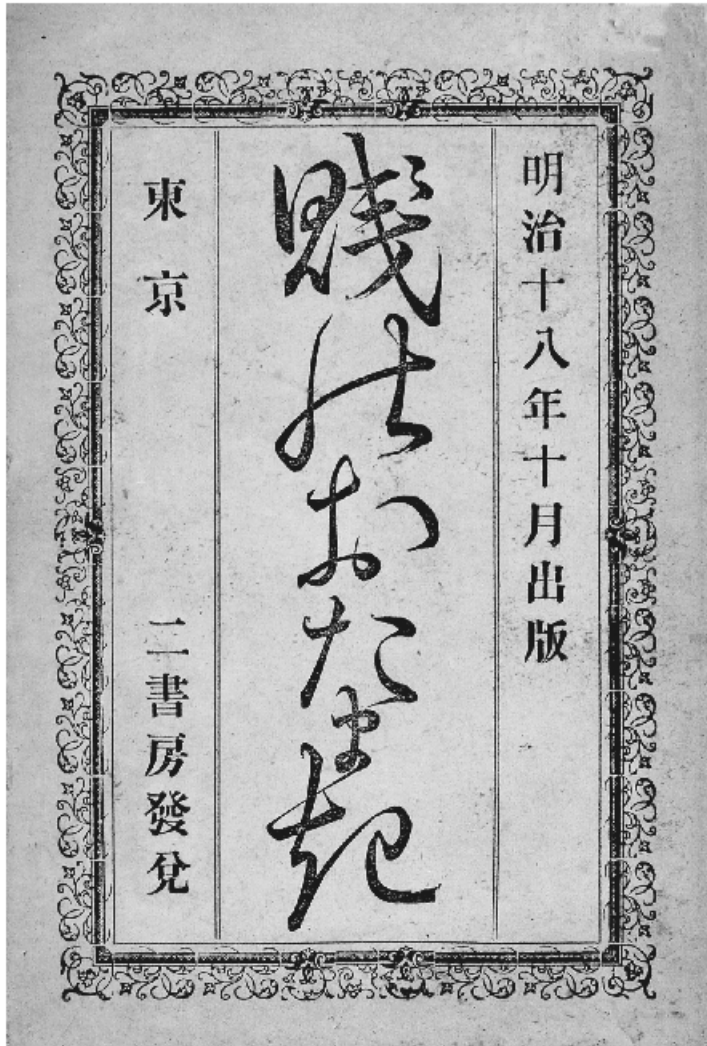 明治十八年十月出版
賤のおたま起
東京 二書房發兌